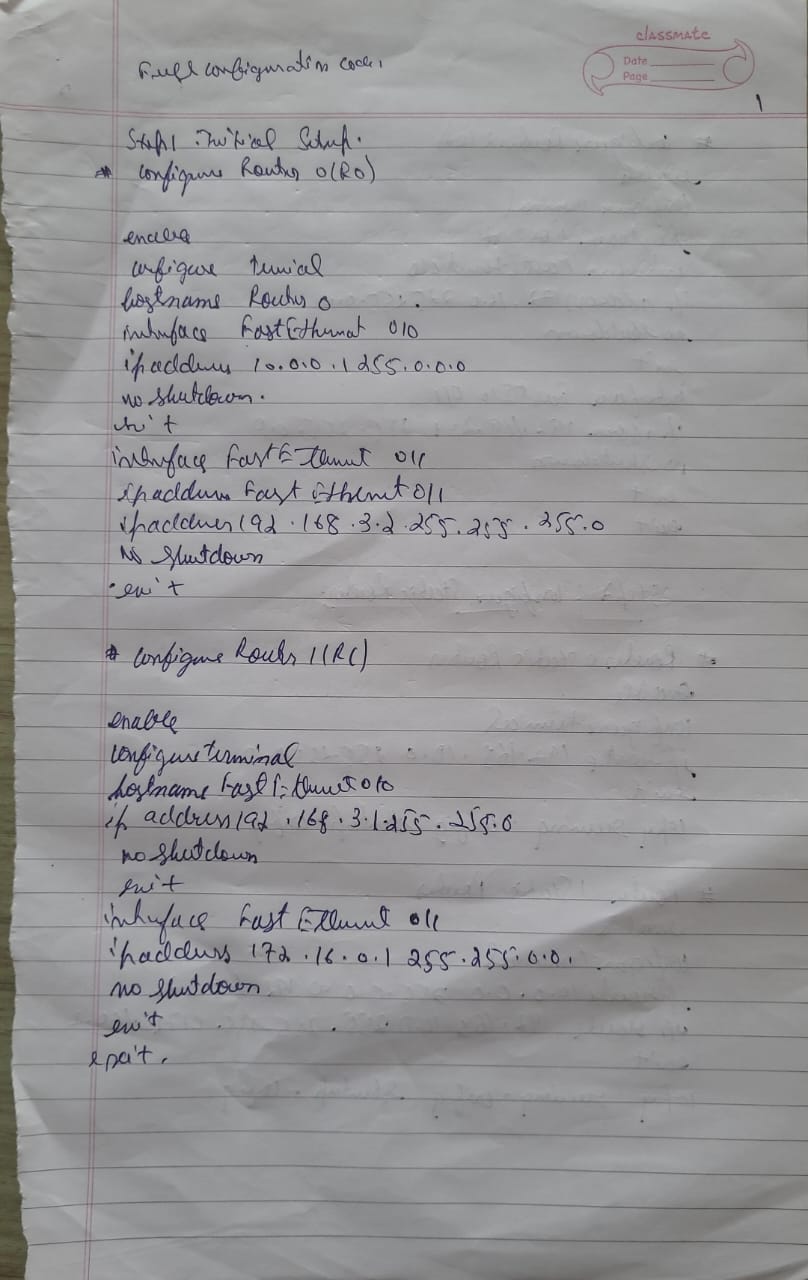 classmate
Date
Page
1
Full configuration code.
Step 1 Initial Setup.
* configure Router 0(R0)
enable
configure terminal
hostname Router 0
interface FastEthernet 0/0
ip address 10.0.0.1 255.0.0.0
no shutdown.
exit
interface FastEthernet 0/1
ip address Fast Ethernet 0/1
ip address 192.168.3.2.255.255.255.0
No Shutdown
exit
* configure Router 1(R1)
enable
configure terminal
hostname FastEthernet 0/0
ip address 192.168.3.1.255.255.0
no shutdown
exit
interface Fast Ethernet 0/1
ip address 172.16.0.1 255.255.0.0.
no shutdown
exit
exit.